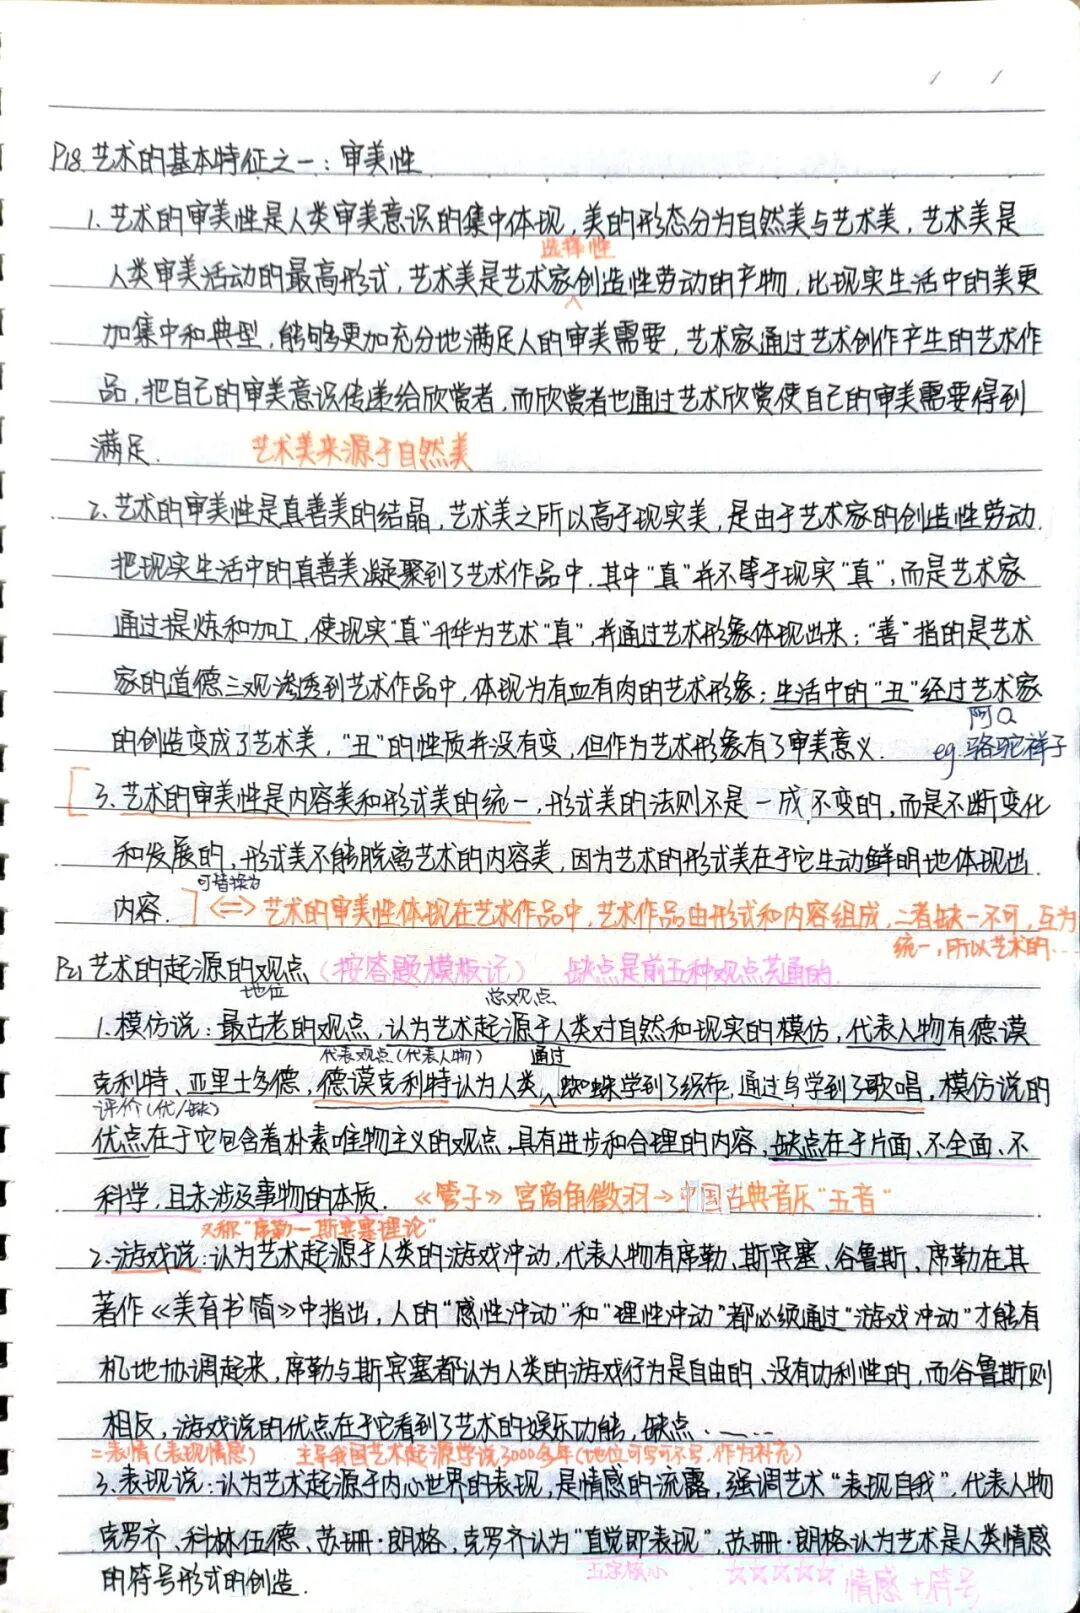 P18.艺术的基本特征之一：审美性
1.艺术的审美性是人类审美意识的集中体现，美的形态分为自然美与艺术美，艺术美是
选择性
人类审美活动的最高形式，艺术美是艺术家创造性劳动的产物，比现实生活中的美更
加集中和典型，能够更加充分地满足人的审美需要，艺术家通过艺术创作产生的艺术作
品，把自己的审美意识传递给欣赏者，而欣赏者也通过艺术欣赏使自己的审美需要得到
满足. 艺术美来源于自然美
2.艺术的审美性是真善美的结晶，艺术美之所以高于现实美，是由于艺术家的创造性劳动.
把现实生活中的真善美凝聚到了艺术作品中.其中“真”并不等于现实“真”，而是艺术家
通过提炼和加工，使现实“真”升华为艺术“真”，并通过艺术形象体现出来；“善”指的是艺术
家的道德三观渗透到艺术作品中，体现为有血有肉的艺术形象；生活中的“丑”经过艺术家
阿Q
的创造变成了艺术美，“丑”的性质并没有变，但作为艺术形象有了审美意义. eg.骆驼祥子
3.艺术的审美性是内容美和形式美的统一，形式美的法则不是一成不变的，而是不断变化
和发展的，形式美不能脱离艺术的内容美，因为艺术的形式美在于它生动鲜明地体现出
可替换为
内容. ⟺ 艺术的审美性体现在艺术作品中，艺术作品由形式和内容组成，二者缺一不可，互为
统一，所以艺术的…
P21艺术的起源的观点（按答题模版记） 缺点是前五种观点共通的.
地位 总观点
1.模仿说：最古老的观点，认为艺术起源于人类对自然和现实的模仿，代表人物有德谟
代表观点（代表人物） 通过
克利特、亚里士多德，德谟克利特认为人类蜘蛛学到了织布，通过鸟学到了歌唱，模仿说的
评价（优/缺）
优点在于它包含着朴素唯物主义的观点，具有进步和合理的内容，缺点在于片面、不全面、不
科学，且未涉及事物的本质. 《管子》宫商角徵羽→中国古典音乐“五音”
又称“席勒—斯宾塞理论”
2.游戏说：认为艺术起源于人类的游戏冲动，代表人物有席勒、斯宾塞、谷鲁斯、席勒在其
著作《美育书简》中指出，人的“感性冲动”和“理性冲动”都必须通过“游戏冲动”才能有
机地协调起来，席勒与斯宾塞都认为人类的游戏行为是自由的、没有功利性的，而谷鲁斯则
相反，游戏说的优点在于它看到了艺术的娱乐功能，缺点……
=表情（表现情感） 主导我国艺术起源学说3000多年（地位可写可不写.作为补充）
3.表现说：认为艺术起源于内心世界的表现，是情感的流露，强调艺术“表现自我”，代表人物
克罗齐、科林伍德、苏珊·朗格，克罗齐认为“直觉即表现”，苏珊·朗格认为艺术是人类情感
五字核心 ☆☆☆☆☆ 情感+符号
的符号形式的创造.